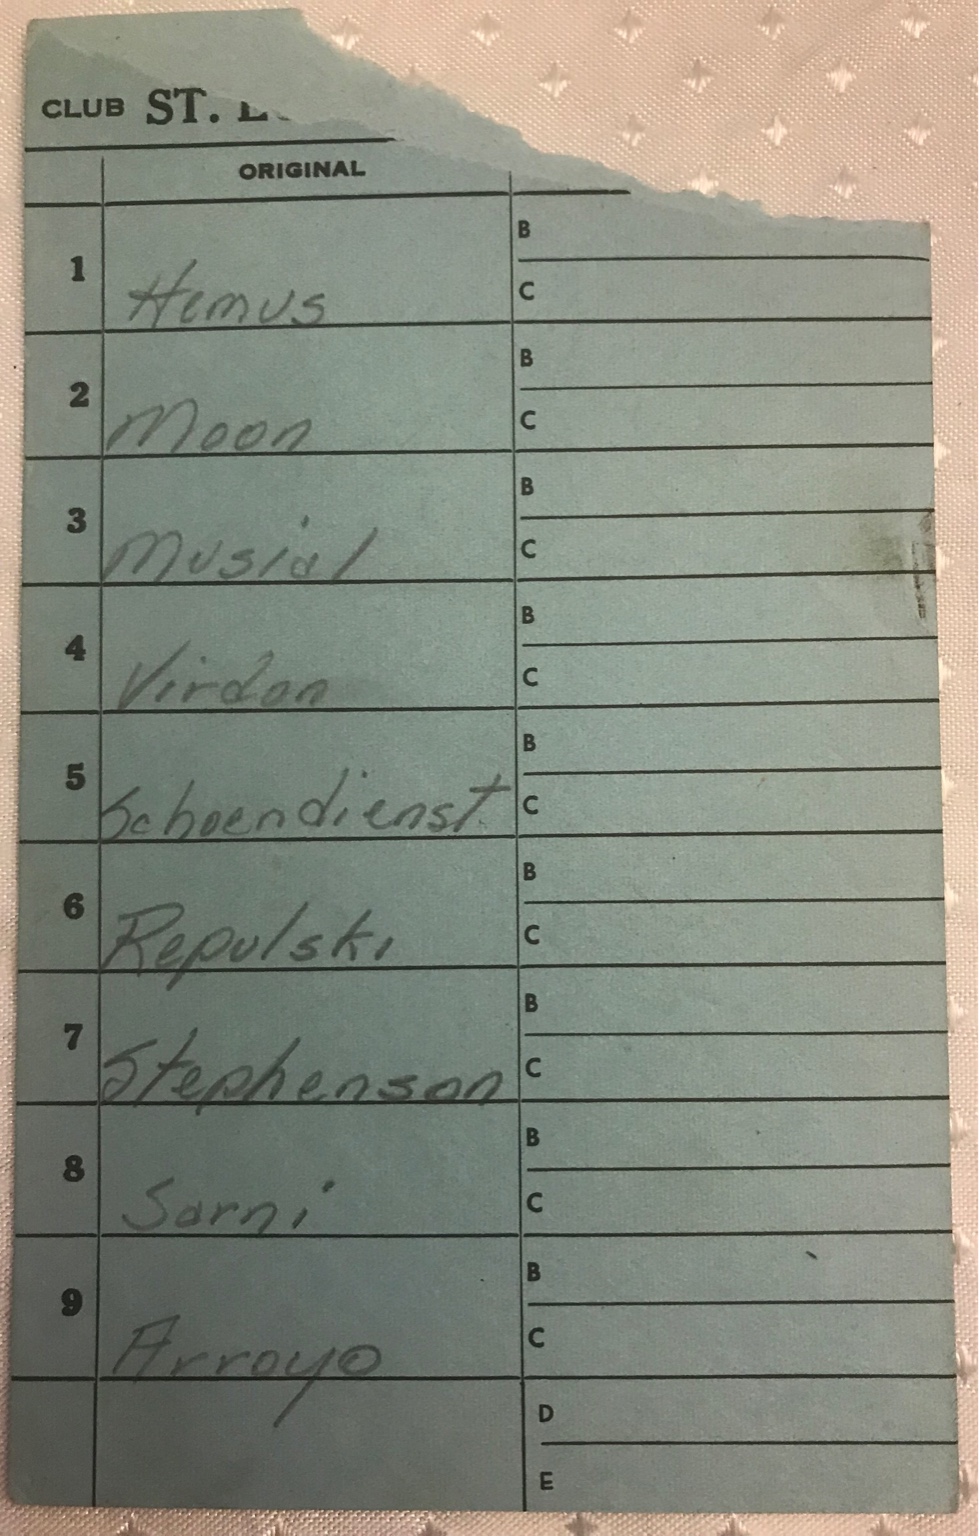 CLUB ST.
ORIGINAL
B
1 Hemus C
B
2 Moon C
B
3 Musial C
B
4 Virdon C
B
5 Schoendienst C
B
6 Repulski C
B
7 Stephenson C
B
8 Sarni C
B
9 Arroyo C
D
E